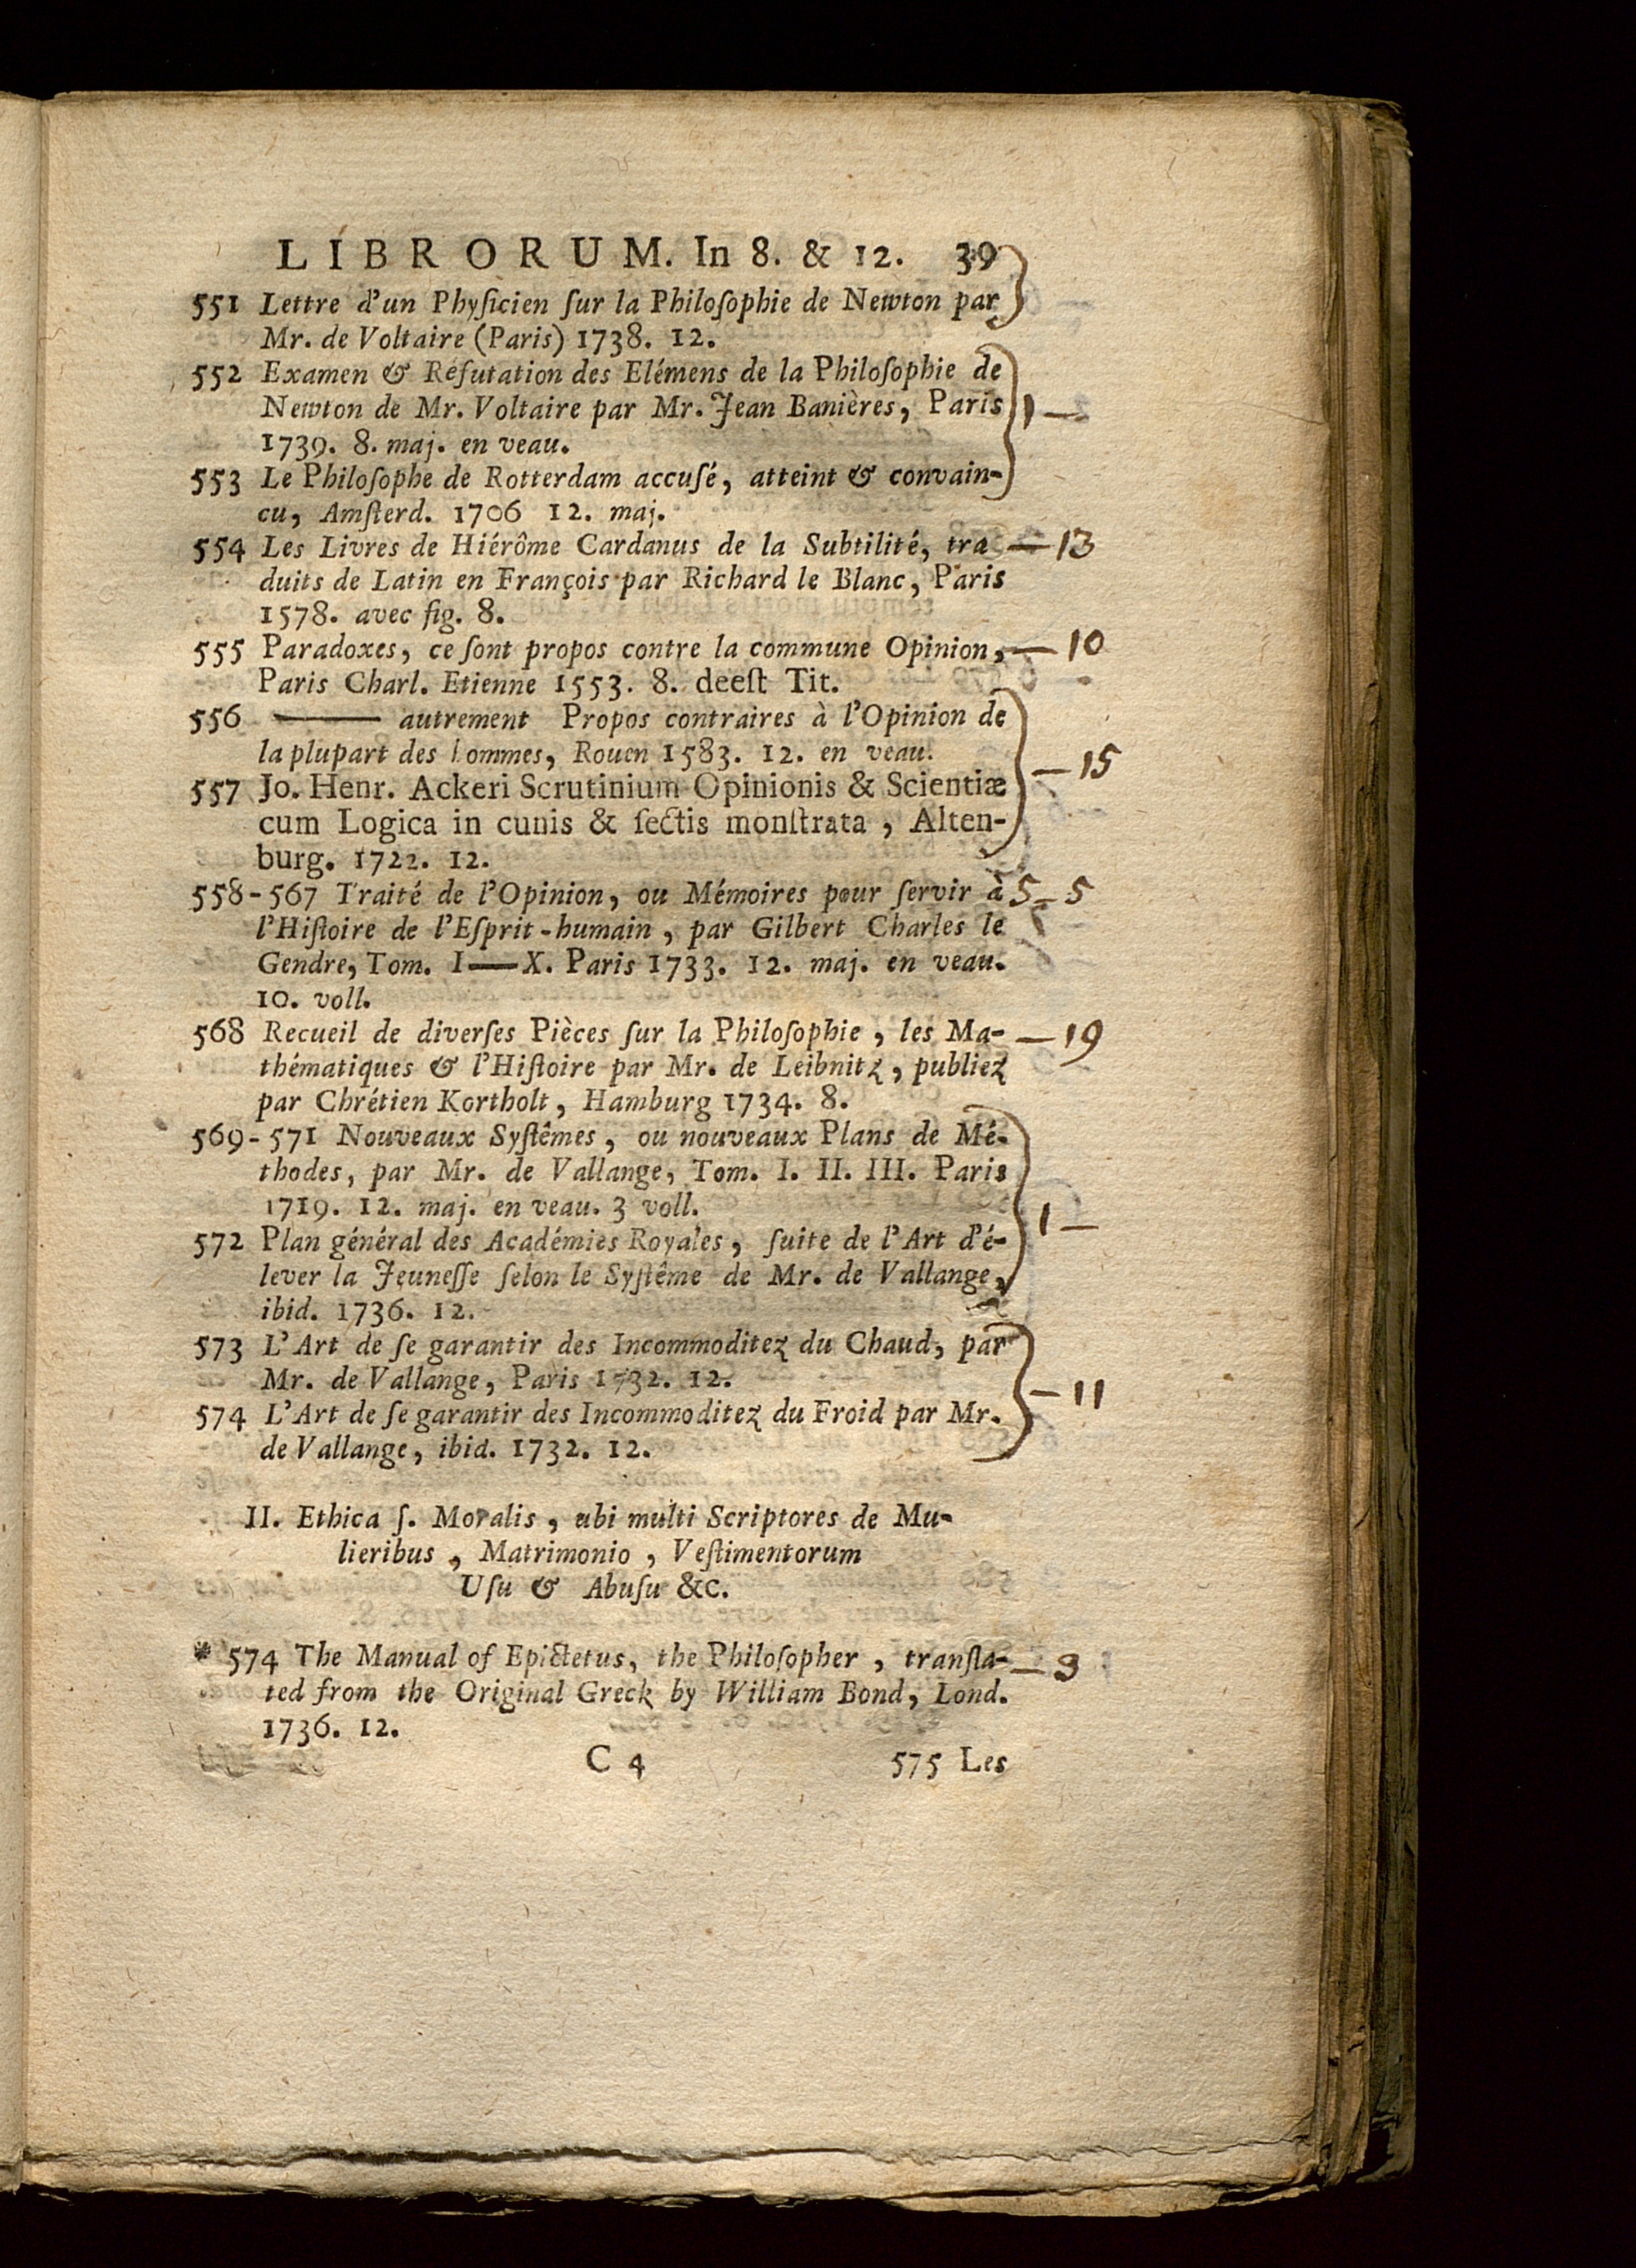 LIBRORUM. In 8. & 12. 39
551 Lettre d'un Phyſicien ſur la Philoſophie de Newton par
Mr. de Voltaire (Paris) 1738. 12.
552 Examen & Réfutation des Elémens de la Philoſophie de
Newton de Mr. Voltaire par Mr. Jean Banières, Paris 1 —
1739. 8. maj. en veau.
553 Le Philoſophe de Rotterdam accuſé, atteint & convain-
cu, Amſterd. 1706 12. maj.
554 Les Livres de Hiérôme Cardanus de la Subtilité, tra — 13
duits de Latin en François par Richard le Blanc, Paris
1578. avec fig. 8.
555 Paradoxes, ce ſont propos contre la commune Opinion, — 10
Paris Charl. Etienne 1553. 8. deeſt Tit.
556 —— autrement Propos contraires à l'Opinion de
la plupart des hommes, Rouen 1583. 12. en veau. — 15
557 Jo. Henr. Ackeri Scrutinium Opinionis & Scientiæ
cum Logica in cunis & ſectis monſtrata, Alten-
burg. 1722. 12.
558-567 Traité de l'Opinion, ou Mémoires pour ſervir à 5 - 5
l'Hiſtoire de l'Eſprit-humain, par Gilbert Charles le
Gendre, Tom. I—X. Paris 1733. 12. maj. en veau.
10. voll.
568 Recueil de diverſes Pièces ſur la Philoſophie, les Ma- — 19
thématiques & l'Hiſtoire par Mr. de Leibnitz, publiez
par Chrétien Kortholt, Hamburg 1734. 8.
569-571 Nouveaux Syſtêmes, ou nouveaux Plans de Mé-
thodes, par Mr. de Vallange, Tom. I. II. III. Paris
1719. 12. maj. en veau. 3 voll. 1 —
572 Plan général des Académies Royales, ſuite de l'Art d'é-
lever la Jeuneſſe ſelon le Syſtême de Mr. de Vallange,
ibid. 1736. 12.
573 L'Art de ſe garantir des Incommoditez du Chaud, par
Mr. de Vallange, Paris 1732. 12. — 11
574 L'Art de ſe garantir des Incommoditez du Froid par Mr.
de Vallange, ibid. 1732. 12.
II. Ethica ſ. Moralis, ubi multi Scriptores de Mu-
lieribus, Matrimonio, Veſtimentorum
Uſu & Abuſu &c.
* 574 The Manual of Epictetus, the Philoſopher, tranſla- — 9
ted from the Original Greek by William Bond, Lond.
1736. 12.
C 4 575 Les